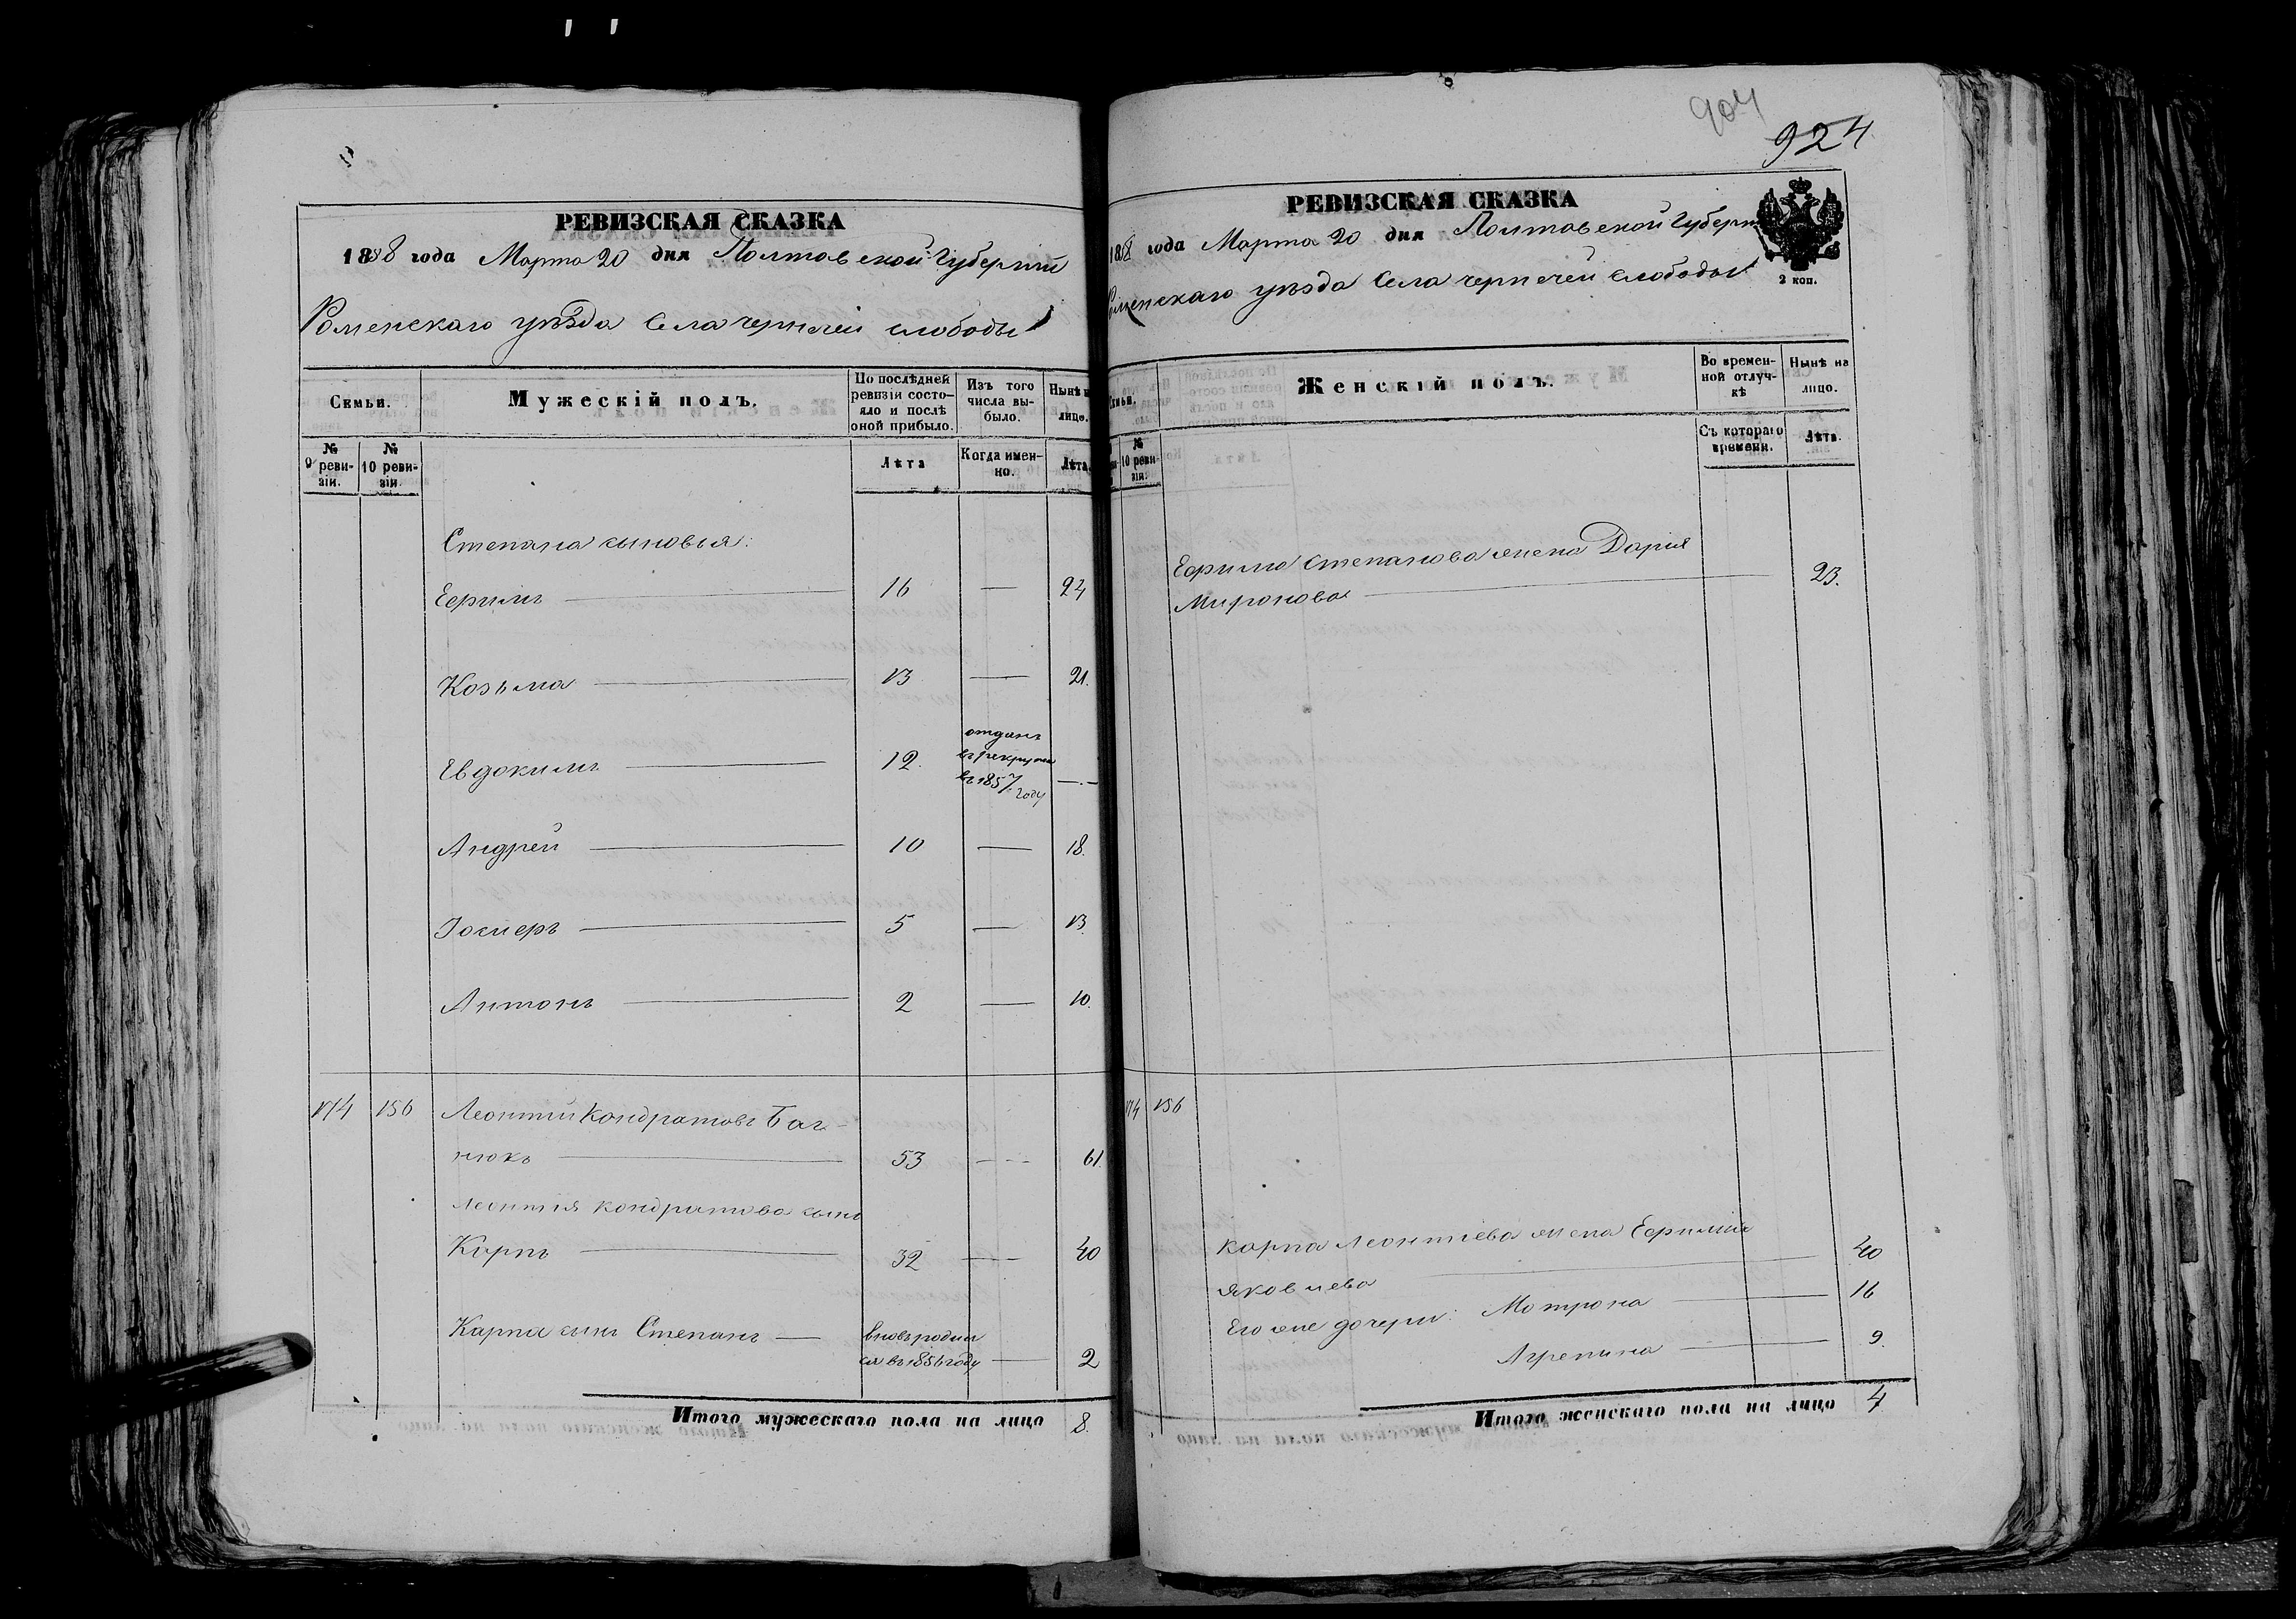 904
924
РЕВИЗСКАЯ СКАЗКА
1858 года Марта 20 дня Полтавской Губерніи
Роменскаго уѣзда Села чернечей слободы
Семьи.
Мужескій полъ.
По послѣдней ревизіи состояло и послѣ оной прибыло.
Изъ того числа выбыло.
Нынѣ на лицо.
№ 9 ревизіи.
№ 10 ревизіи.
Лѣта
Когда именно.
Лѣта.
Степана сыновья:
Ефимъ — 16 — 24
Козьма — 13 — 21.
Евдокимъ — 12. отданъ
въ рекруты
въ 1857 году —
Андрей — 10 — 18.
Іосифъ — 5 — 13.
Антонъ — 2 — 10.
174 156 Леонтій Кондратовъ Баг-
нюкъ — 53 — 61.
Леонтія кондратова сынъ
Карпъ — 32 — 40
Карпа сынъ Степанъ — вновь родил
ся въ 1856 году — 2
Итого мужескаго пола на лицо 8.
РЕВИЗСКАЯ СКАЗКА
1858 года Марта 20 дня Полтавской Губерн
Роменскаго уѣзда Села чернечей слободы
2 коп.
Семьи.
Женскій полъ.
Во временной отлучкѣ
Нынѣ на лицо.
10 ревизіи.
Съ котораго времени.
Лѣта.
Ефима Степанова жена Дарія
Миронова — 23.
174 156
Карпа Леонтіева жена Ефимія
Яковлева — 40
Его же дочери: Мотрона — 16
Агрепина — 9.
Итого женскаго пола на лицо 4